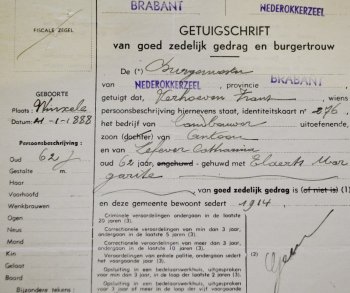 BRABANT
NEDEROKKERZEEL
FISCALE ZEGEL
GETUIGSCHRIFT
van goed zedelijk gedrag en burgertrouw
De (*) Burgemeester
van NEDEROKKERZEEL, provincie BRABANT
getuigt dat, Verhoeven Frans, wiens
persoonsbeschrijving hiernevens staat, identiteitskaart n° 276,
het bedrijf van Landbouwer uitoefenende,
zoon (dochter) van Antoon
en Lefever Catharina
oud 62 jaar, ongehuwd - gehuwd met Elaerts Mar
garite
, van goed zedelijk gedrag is (of niet is) (1)
en deze gemeente bewoont sedert 1914.
GEBOORTE
Plaats: Winxele
Datum: 21-1-1888
Persoonsbeschrijving:
Oud 62 j
Gestalte m.
Haar
Voorhoofd
Wenkbrauwen
Ogen
Neus
Mond
Kin
Gelaat
Baard
Bijzondere tekens:
Criminele veroordelingen ondergaan in de laatste
20 jaren (3).
Correctionele veroordelingen van min dan 3 jaar,
ondergaan in de laatste 5 jaren (3).
Correctionele veroordelingen van meer dan 3 jaren,
ondergaan in de laatste 10 jaren (3).
Veroordelingen van enkele politie, ondergaan sedert
het voorgaande jaar (3).
Opsluiting in een bedelaarswerkhuis, uitgesproken
voor min dan een jaar, ondergaan in de laatste
2 jaren (3).
Opsluiting in een bedelaarswerkhuis, uitgesproken
voor een jaar of meer in de loop der vijf laatste
(2)